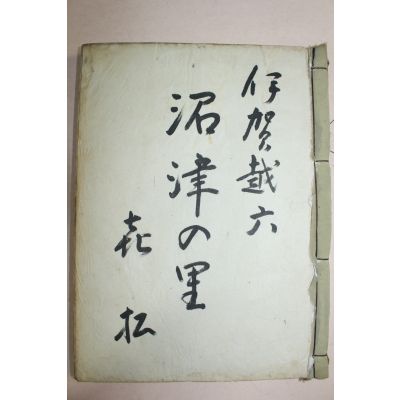 伊賀越六
沼津の里
㐂松